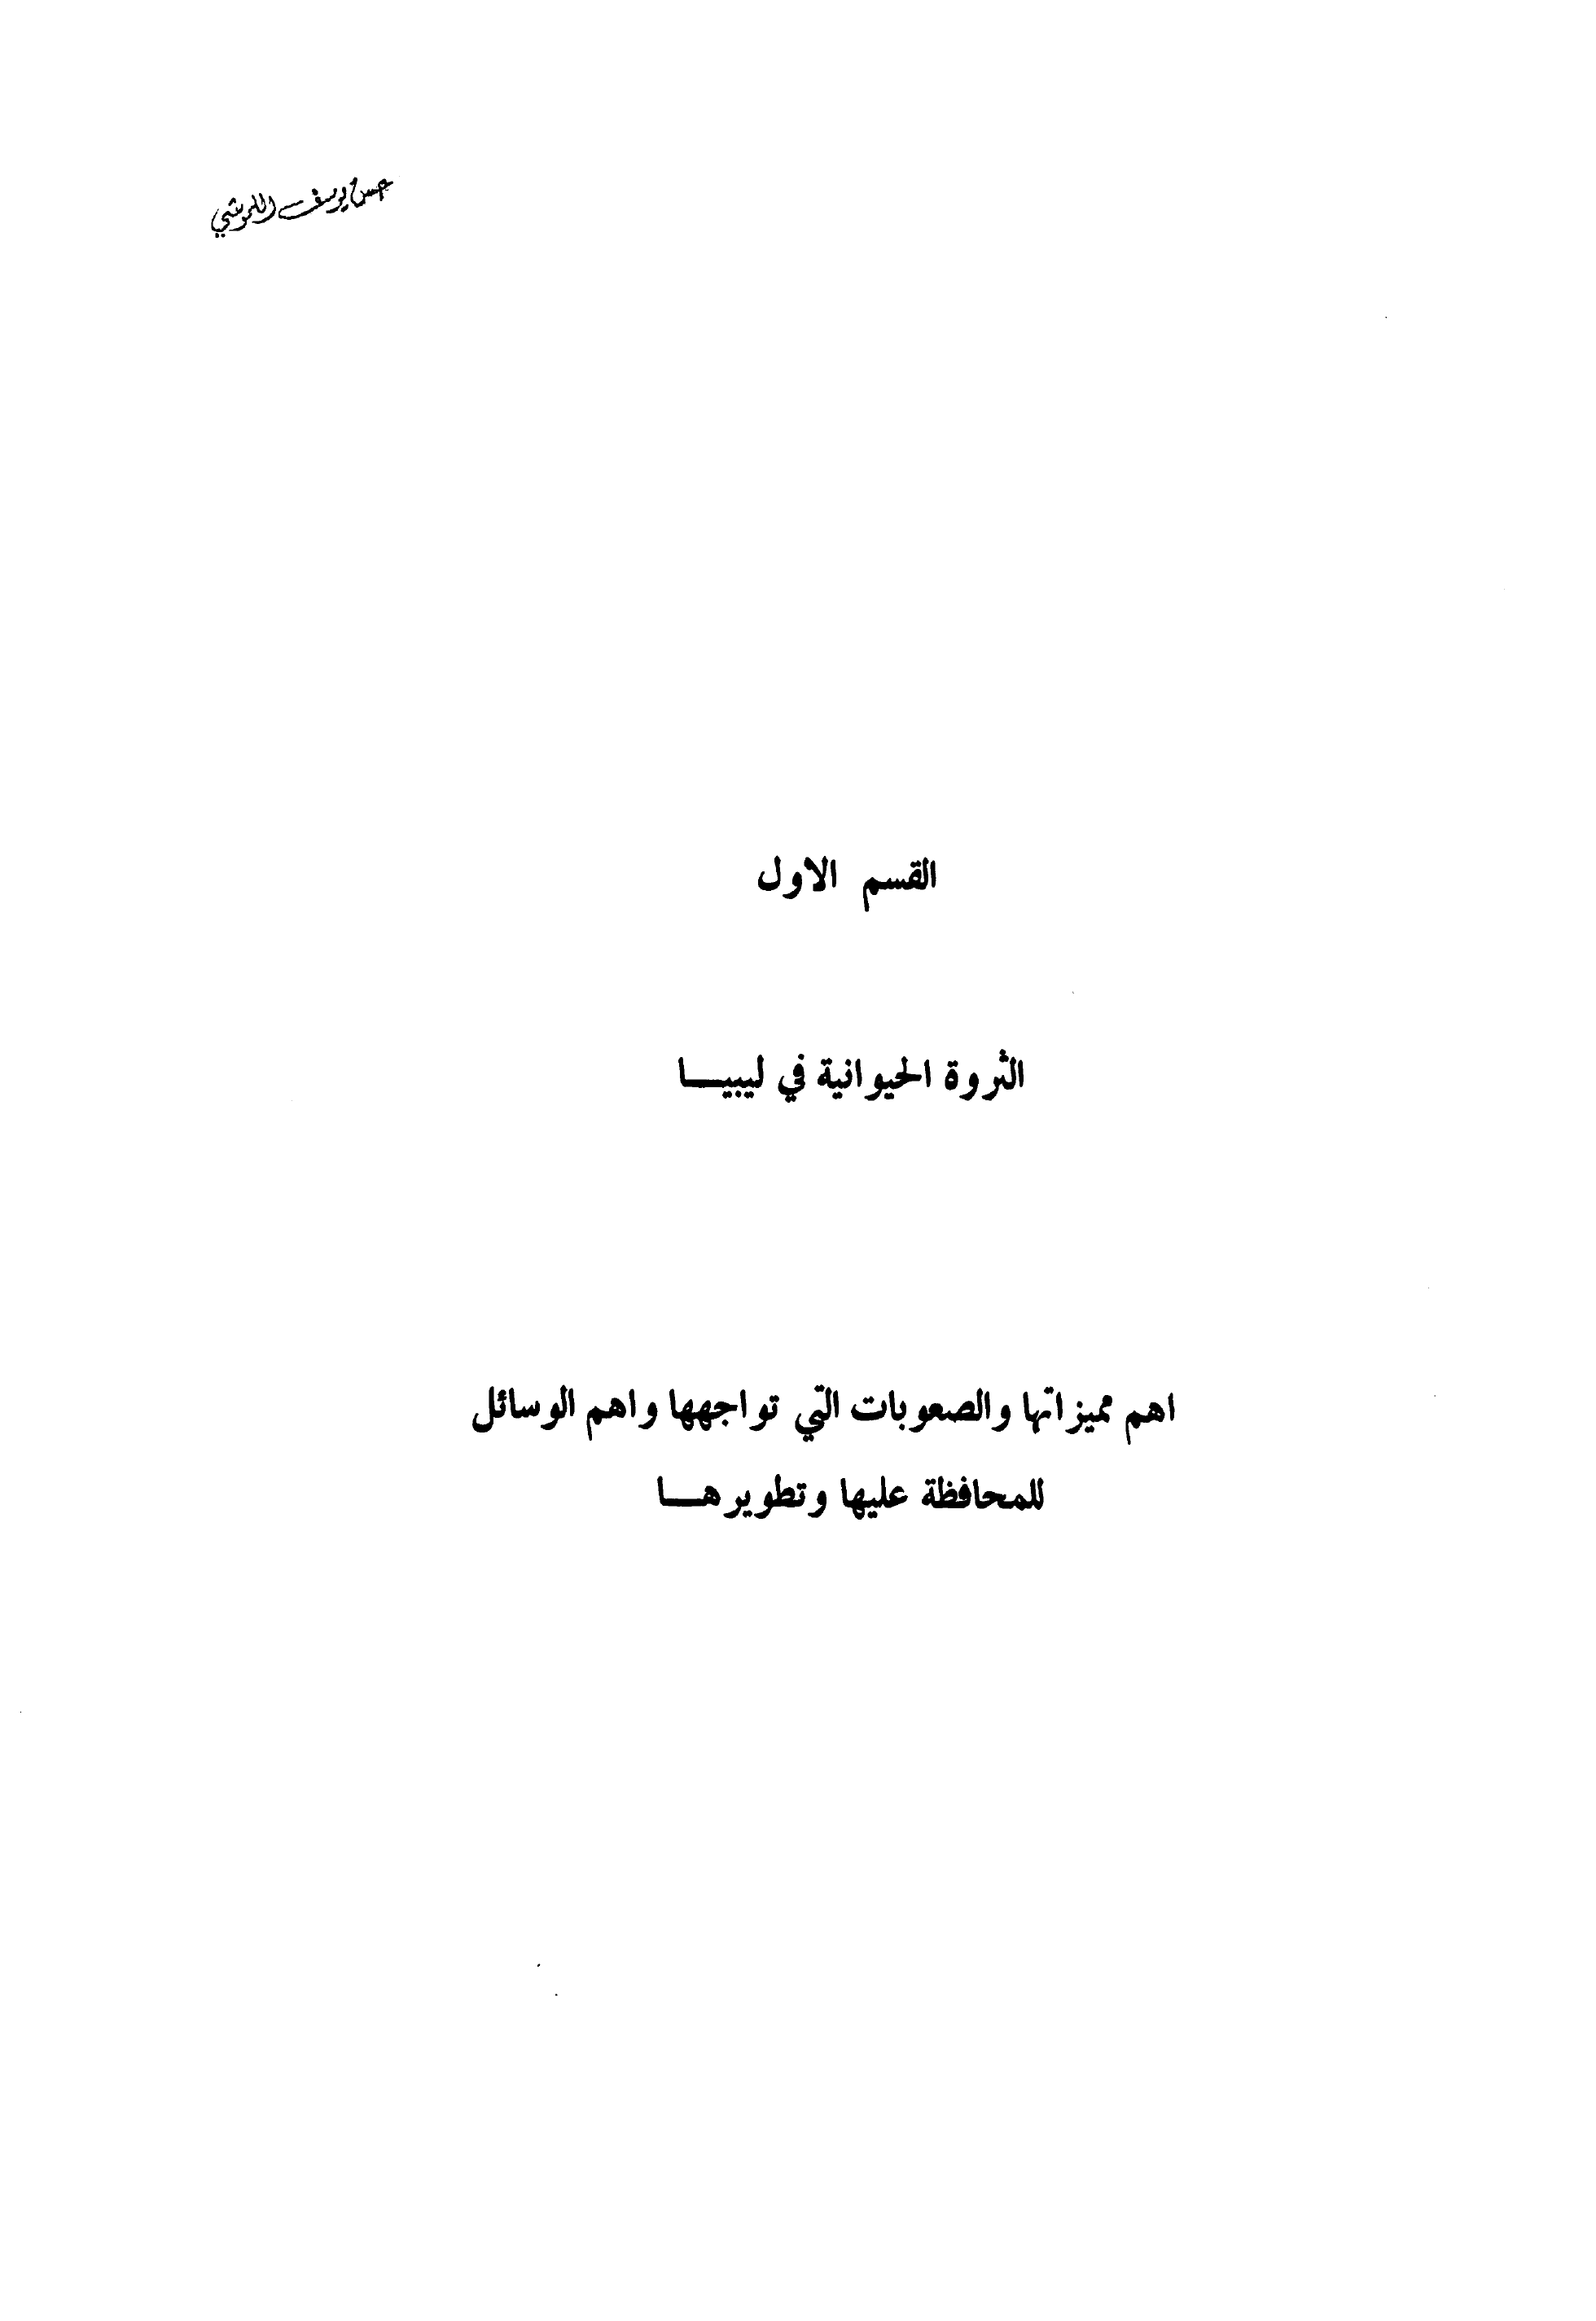 حسن يوسف
القسم الاول
الثروة الحيوانية في ليبيـــا
اهم مميزاتها والصعوبات التي تواجهها واهم الوسائل
للمحافظة عليها وتطويرهـــا